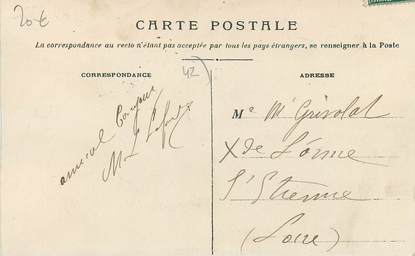 20€
CARTE POSTALE
La correspondance au recto n'étant pas acceptée par tous les pays étrangers, se renseigner à la Poste
CORRESPONDANCE
42
ADRESSE
amical bonjour
M
Me Mr Grisolat
X de L'orme
St Etienne
(Loire)